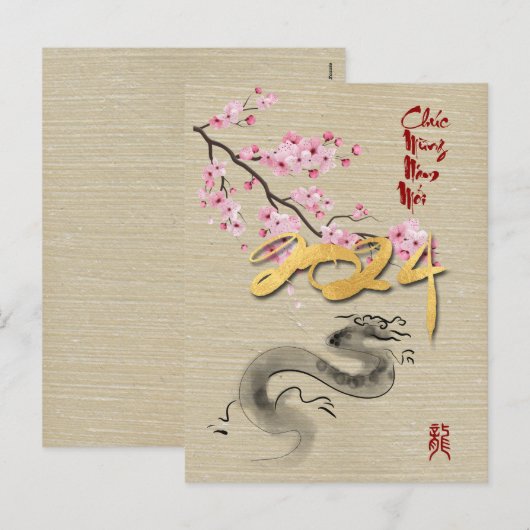 Chúc
Mừng
Năm
Mới
2024
龍
Zazzle